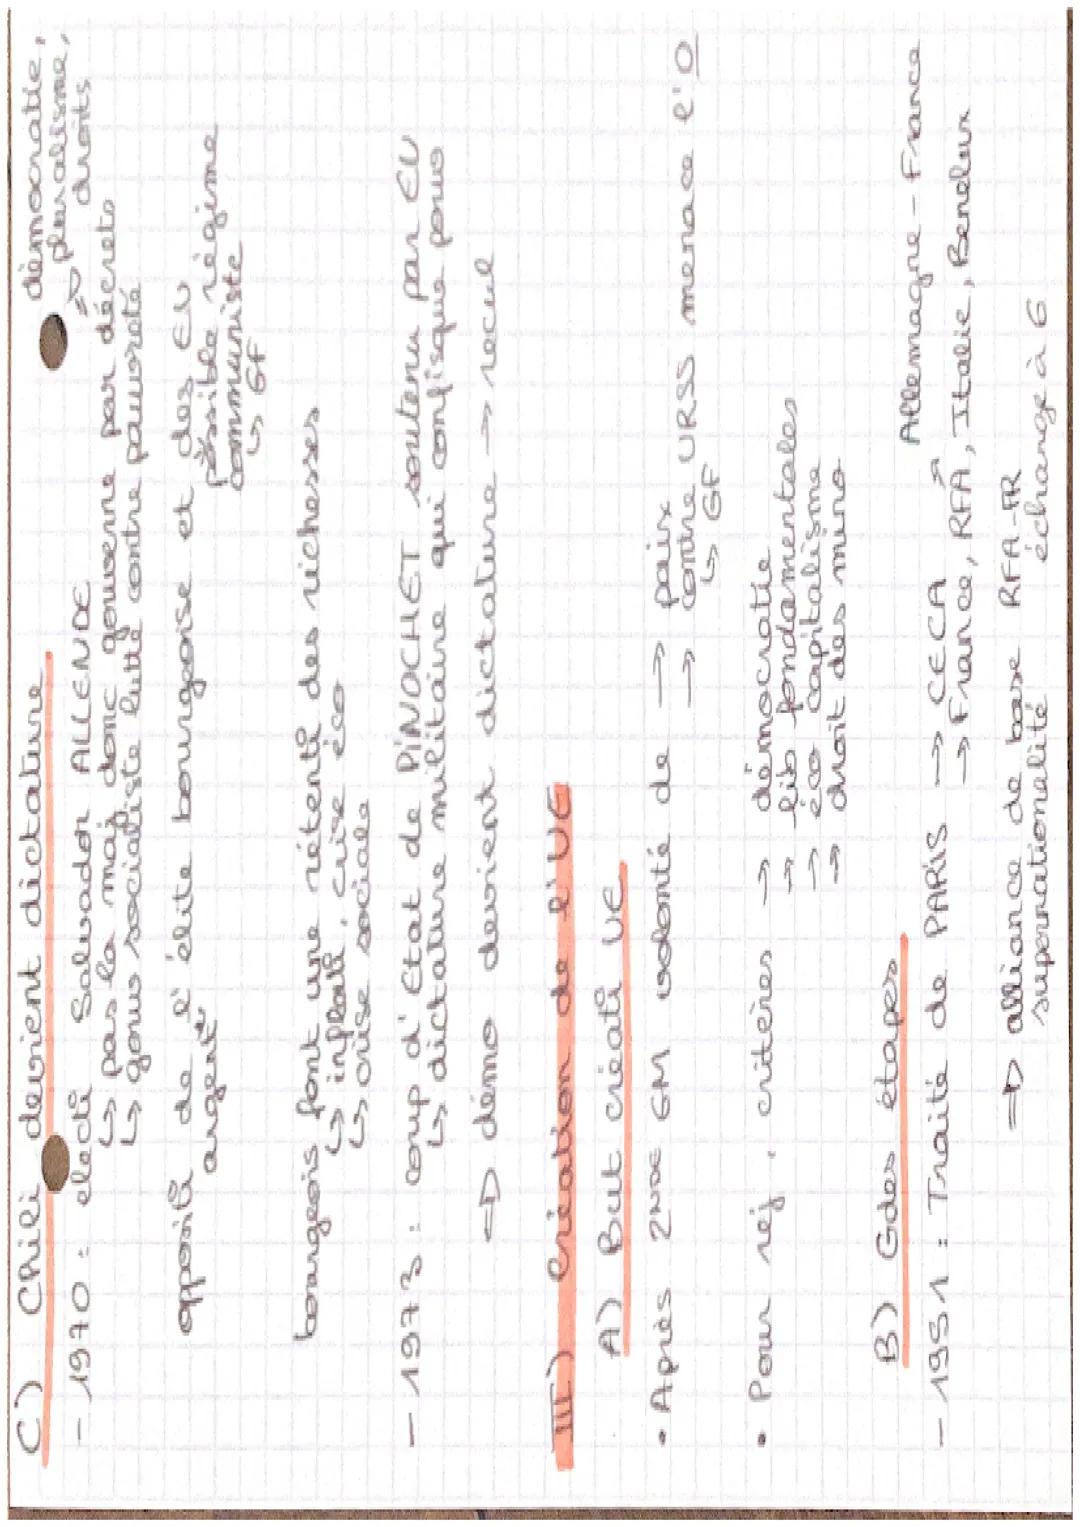 C) Chili devient dictature
démocratie,
=> pluralisme,
droits
- 1970 : électi° Salvador ALLENDE
↳ pas la maj donc gouverne par décrets
↳ gouv socialiste lutte contre pauvreté
oppositi° de l'élite bourgeoise et des EU
argent possible régime
communiste
↳ GF
bourgeois font une rétenti° des richesses
↳ inflati°, crise éco
↳ crise sociale
- 1973 : coup d'Etat de PINOCHET soutenu par EU
↳ dictature militaire qui confisque pouv
=> démo devient dictature → recul
III) Création de l'UE
A) But créati° UE
• Après 2NDE GM volonté de → paix
→ contre URSS menace l'O
↳ GF
• Pour rej. critères → démocratie
→ lib fondamentales
→ éco capitalisme
→ droit des mino
B) Gdes étapes
Allemagne - France
- 1951 : Traité de PARIS → CECA
→ France, RFA, Italie, Benelux
=> alliance de base RFA-FR
supranationalité échange à 6